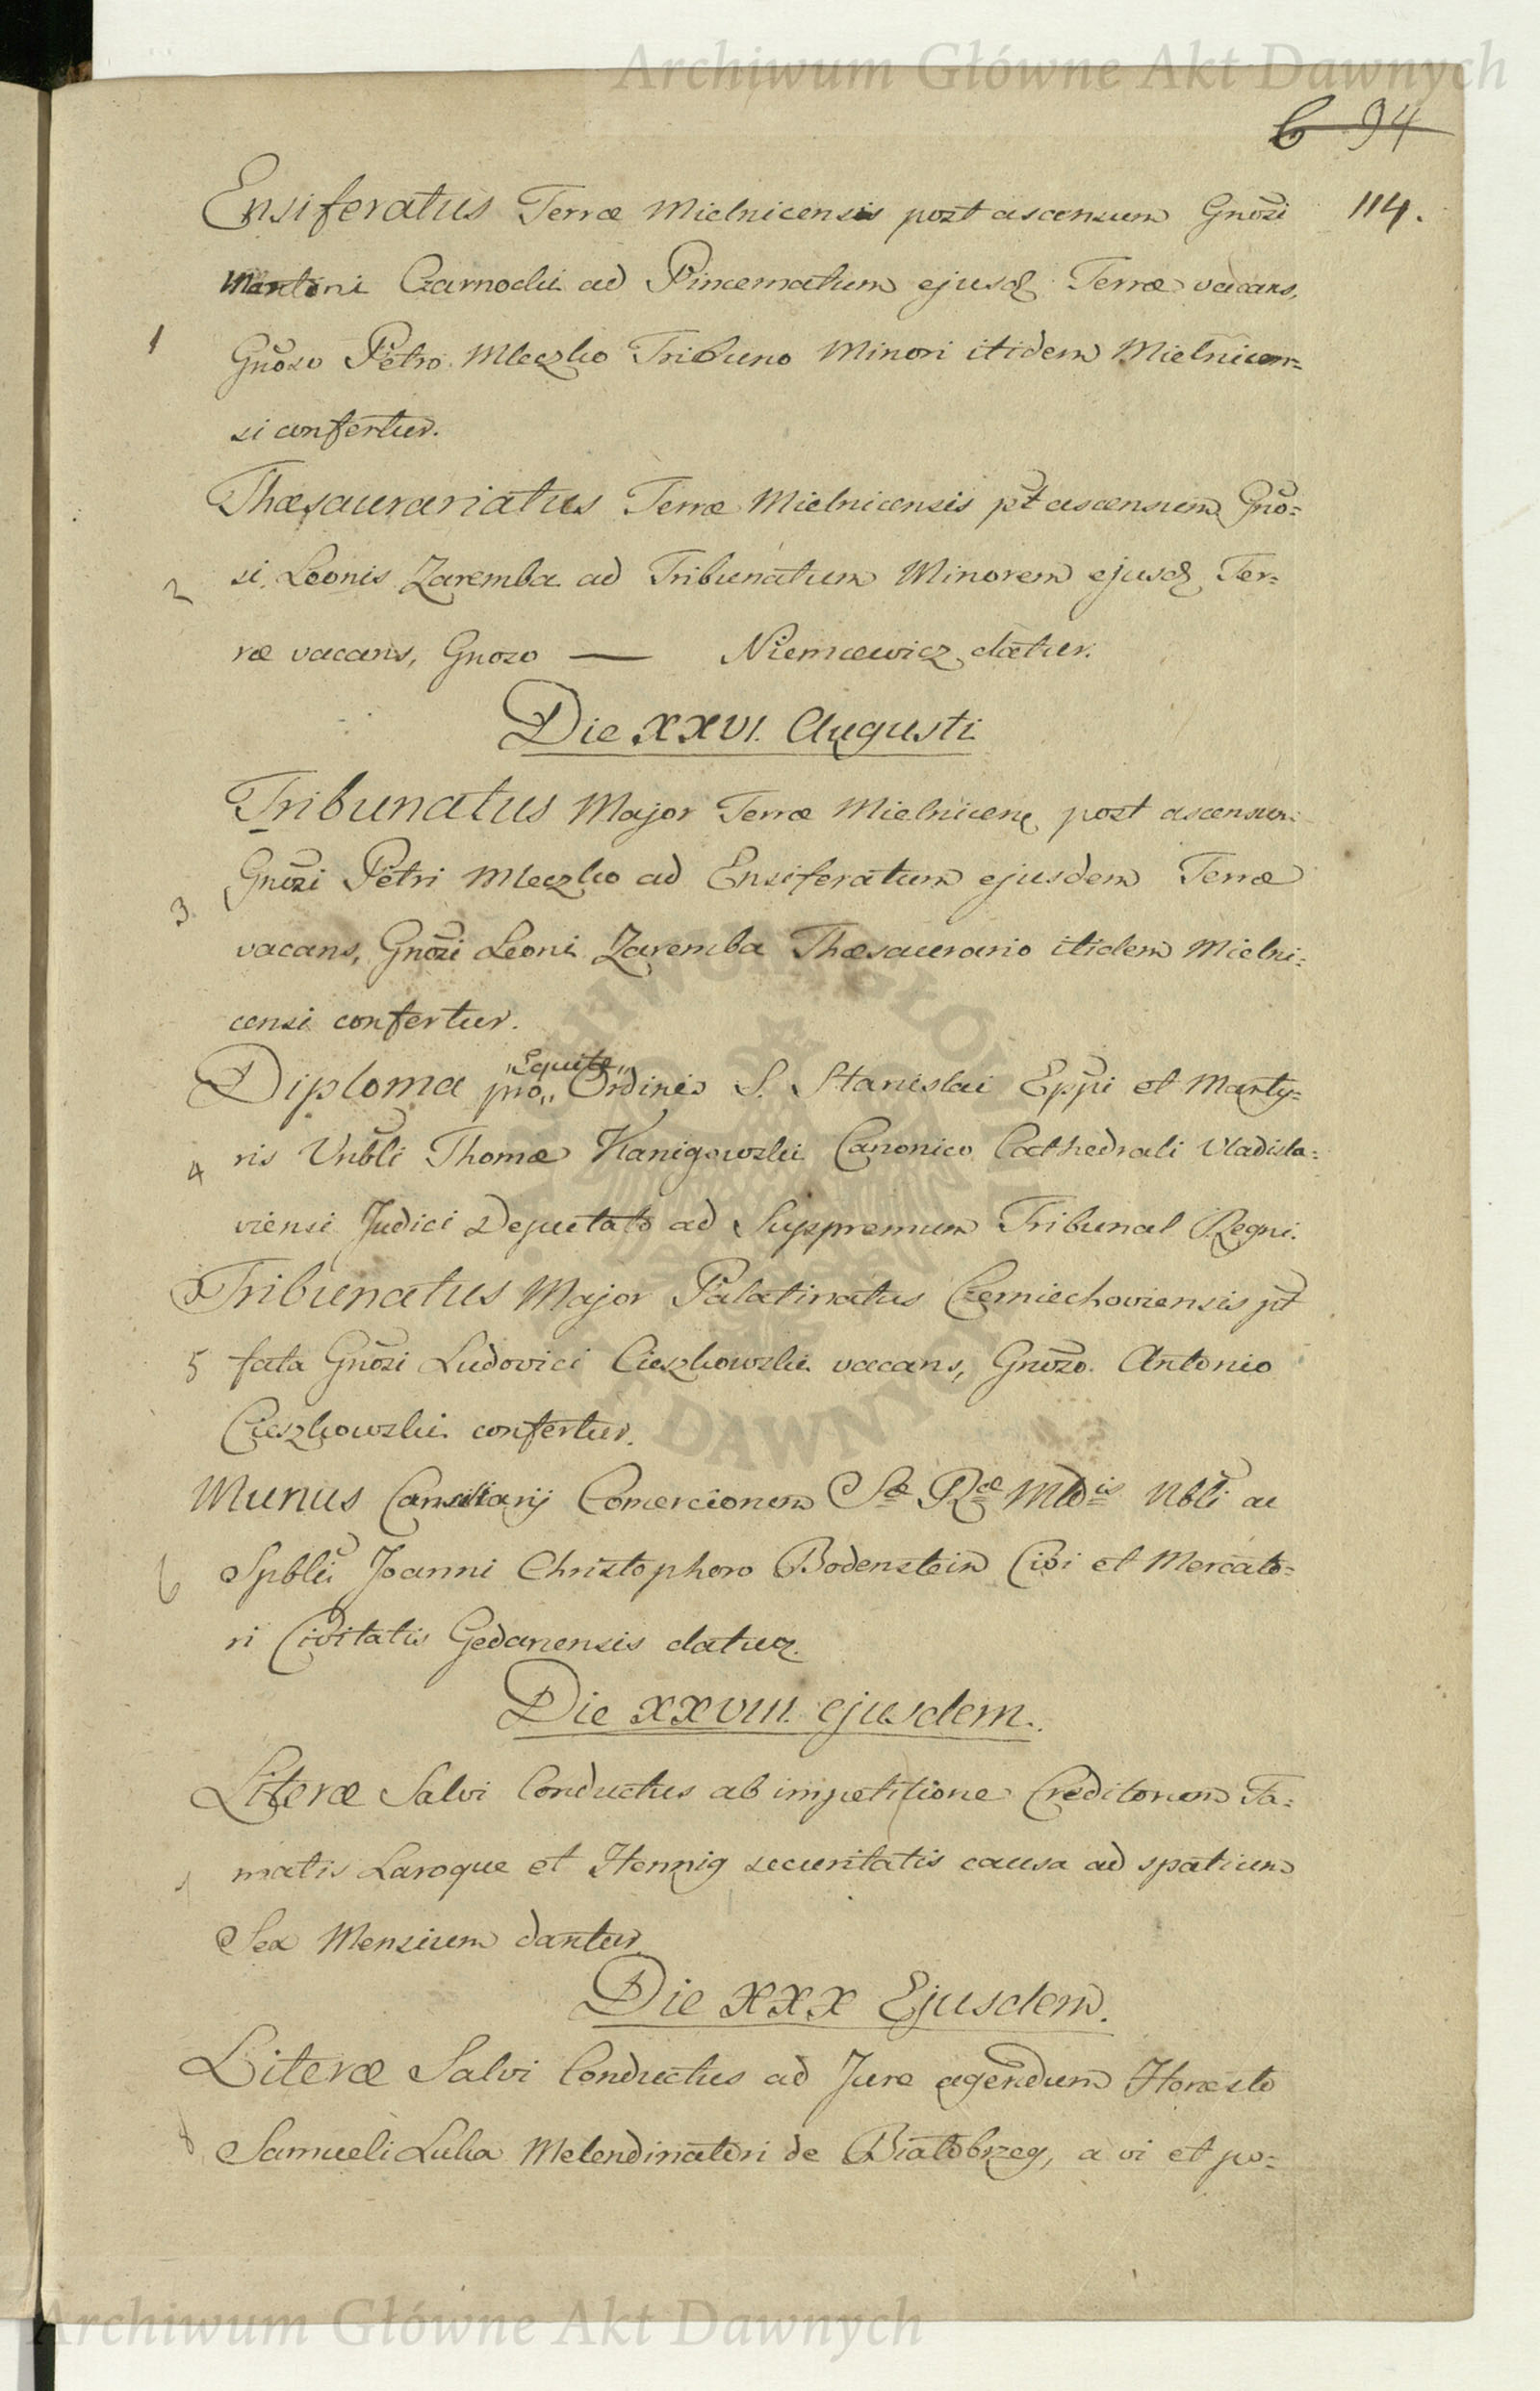 Archiwum Główne Akt Dawnych
6 94
114.
Ensiferatus Terræ Mielnicensis post ascensum Gnosi
Czarnocki ad Pincernatum ejusd. Terræ vacans,
1 Gnoso Petro Mleczko Tribuno Minori itidem Mielnicen=
si confertur.
Thæsaurariatus Terræ Mielnicensis pt ascensum Gno=
2 si Leonis Zaremba ad Tribunatum Minorem ejusd. Ter=
ræ vacans, Gnoso — Niemcewicz datur.
Die XXVI. Augusti
Tribunatus Major Terræ Mielnicen. post ascensum
3. Gnosi Petri Mleczko ad Ensiferatum ejusdem Terræ
vacans, Gnosi Leoni Zaremba Thæsaurario itidem Mielni=
censi confertur.
„Equite„
Diploma pro„ Ordinis S. Stanislai Eppi et Marty=
4 ris Vnbli Thomæ Kanigowski Canonico Cathedrali Vladisla=
viensi Judici Deputato ad Suppremum Tribunal Regni.
Tribunatus Major Palatinatus Czerniechoviensis pt
5 fata Gnosi Ludovici Cieszkowski vacans, Gnoso. Antonio
Cieszkowski confertur.
Munus Consiliarij Comerciorum Sæ Ræ Mtis Nbli ac
6 Spbli Joanni Christophoro Bodenstein Civi et Mercato=
ri Civitatis Gedanensis datur.
Die XXVIII. ejusdem.
Literæ Salvi Conductus ab impetitione Creditorum Fa=
matis Laroque et Hennig securitatis causa ad spatium
Sex Mensium dantur.
Die XXX Ejusdem.
Literæ Salvi Conductus ad Jure agendum Honesto
8 Samueli Luba Molendinatori de Białobrzeg, a vi et po=
Archiwum Główne Akt Dawnych